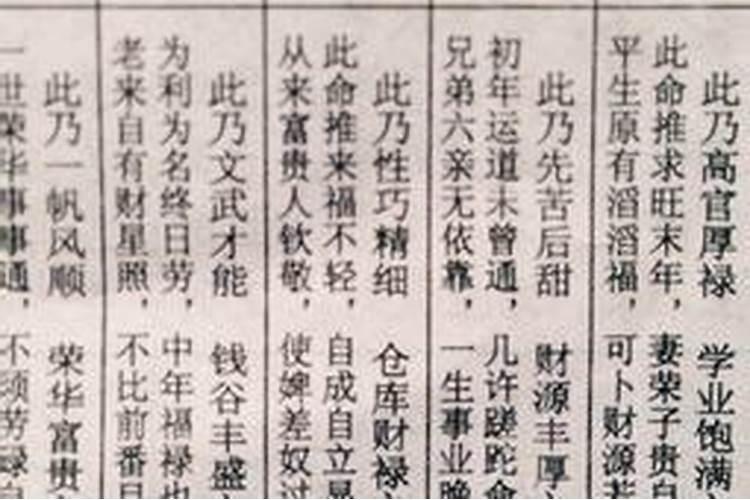 此乃高官厚禄 学业饱满
此命推求旺末年，妻荣子贵自
平生原有滔滔福，可卜财源
此乃先苦后甜 财源丰厚
初年运道未曾通，几许蹉跎命
兄弟六亲无依靠，一生事业晚
此乃性巧精细 仓库财禄
此命推来福不轻，自成自立
从来富贵人钦敬，使婢差奴过
此乃文武才能 钱谷丰盛
为利为名终日劳，中年福禄也
老来自有财星照，不比前番目
此乃一帆风顺 荣华富贵
一世荣华事事通，不须劳碌自